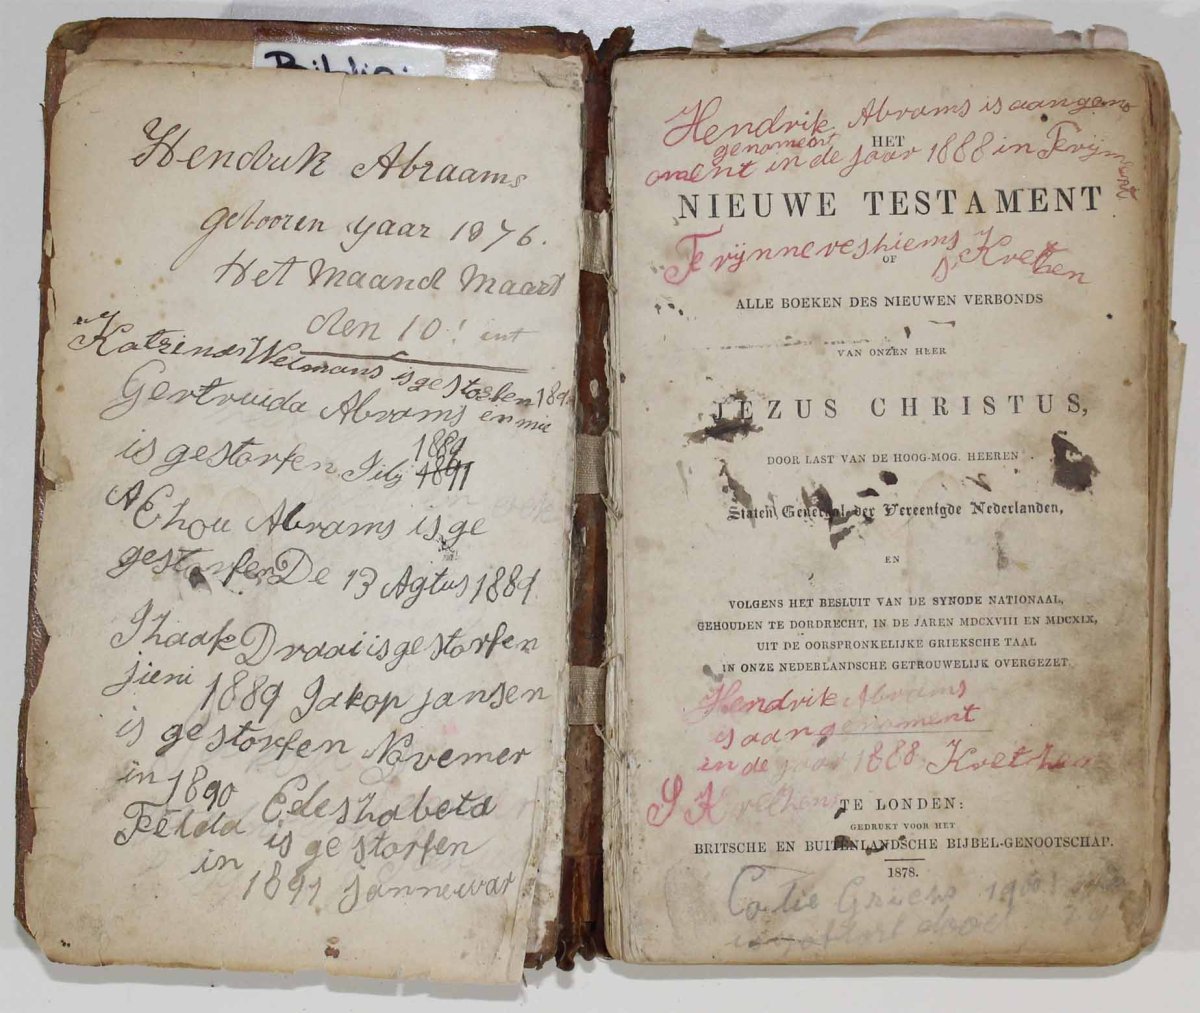 Hendrik Abraams
gebooren yaar 1876.
Het Maand Maart
den 10!
Katrina Weimans is gestorfen 189
Gertruida Abrams en mie
is gestorfen Jily 1889
1891
AEhou Abrams is ge
gestorfen De 13 Agtus 1889
Ihaak Draai is gestorfen
jieni 1889 Jakop jansen
is gestorfen Novemer
in 1890 Edeshabeta
Felda is gestorfen
in 1891 jannewar
Hendrik Abrams is aangeno
genoment
oment in de jaar 1888 in
HET
NIEUWE TESTAMENT
OF
ALLE BOEKEN DES NIEUWEN VERBONDS
VAN ONZEN HEER
JEZUS CHRISTUS,
DOOR LAST VAN DE HOOG-MOG. HEEREN
Staten General der Vereenigde Nederlanden,
EN
VOLGENS HET BESLUIT VAN DE SYNODE NATIONAAL,
GEHOUDEN TE DORDRECHT, IN DE JAREN MDCXVIII EN MDCXIX,
UIT DE OORSPRONKELIJKE GRIEKSCHE TAAL
IN ONZE NEDERLANDSCHE GETROUWELIJK OVERGEZET
Hendrik Abrams
is aangenoment
in de jaar 1888
TE LONDEN:
GEDRUKT VOOR HET
BRITSCHE EN BUITENLANDSCHE BIJBEL-GENOOTSCHAP.
1878.